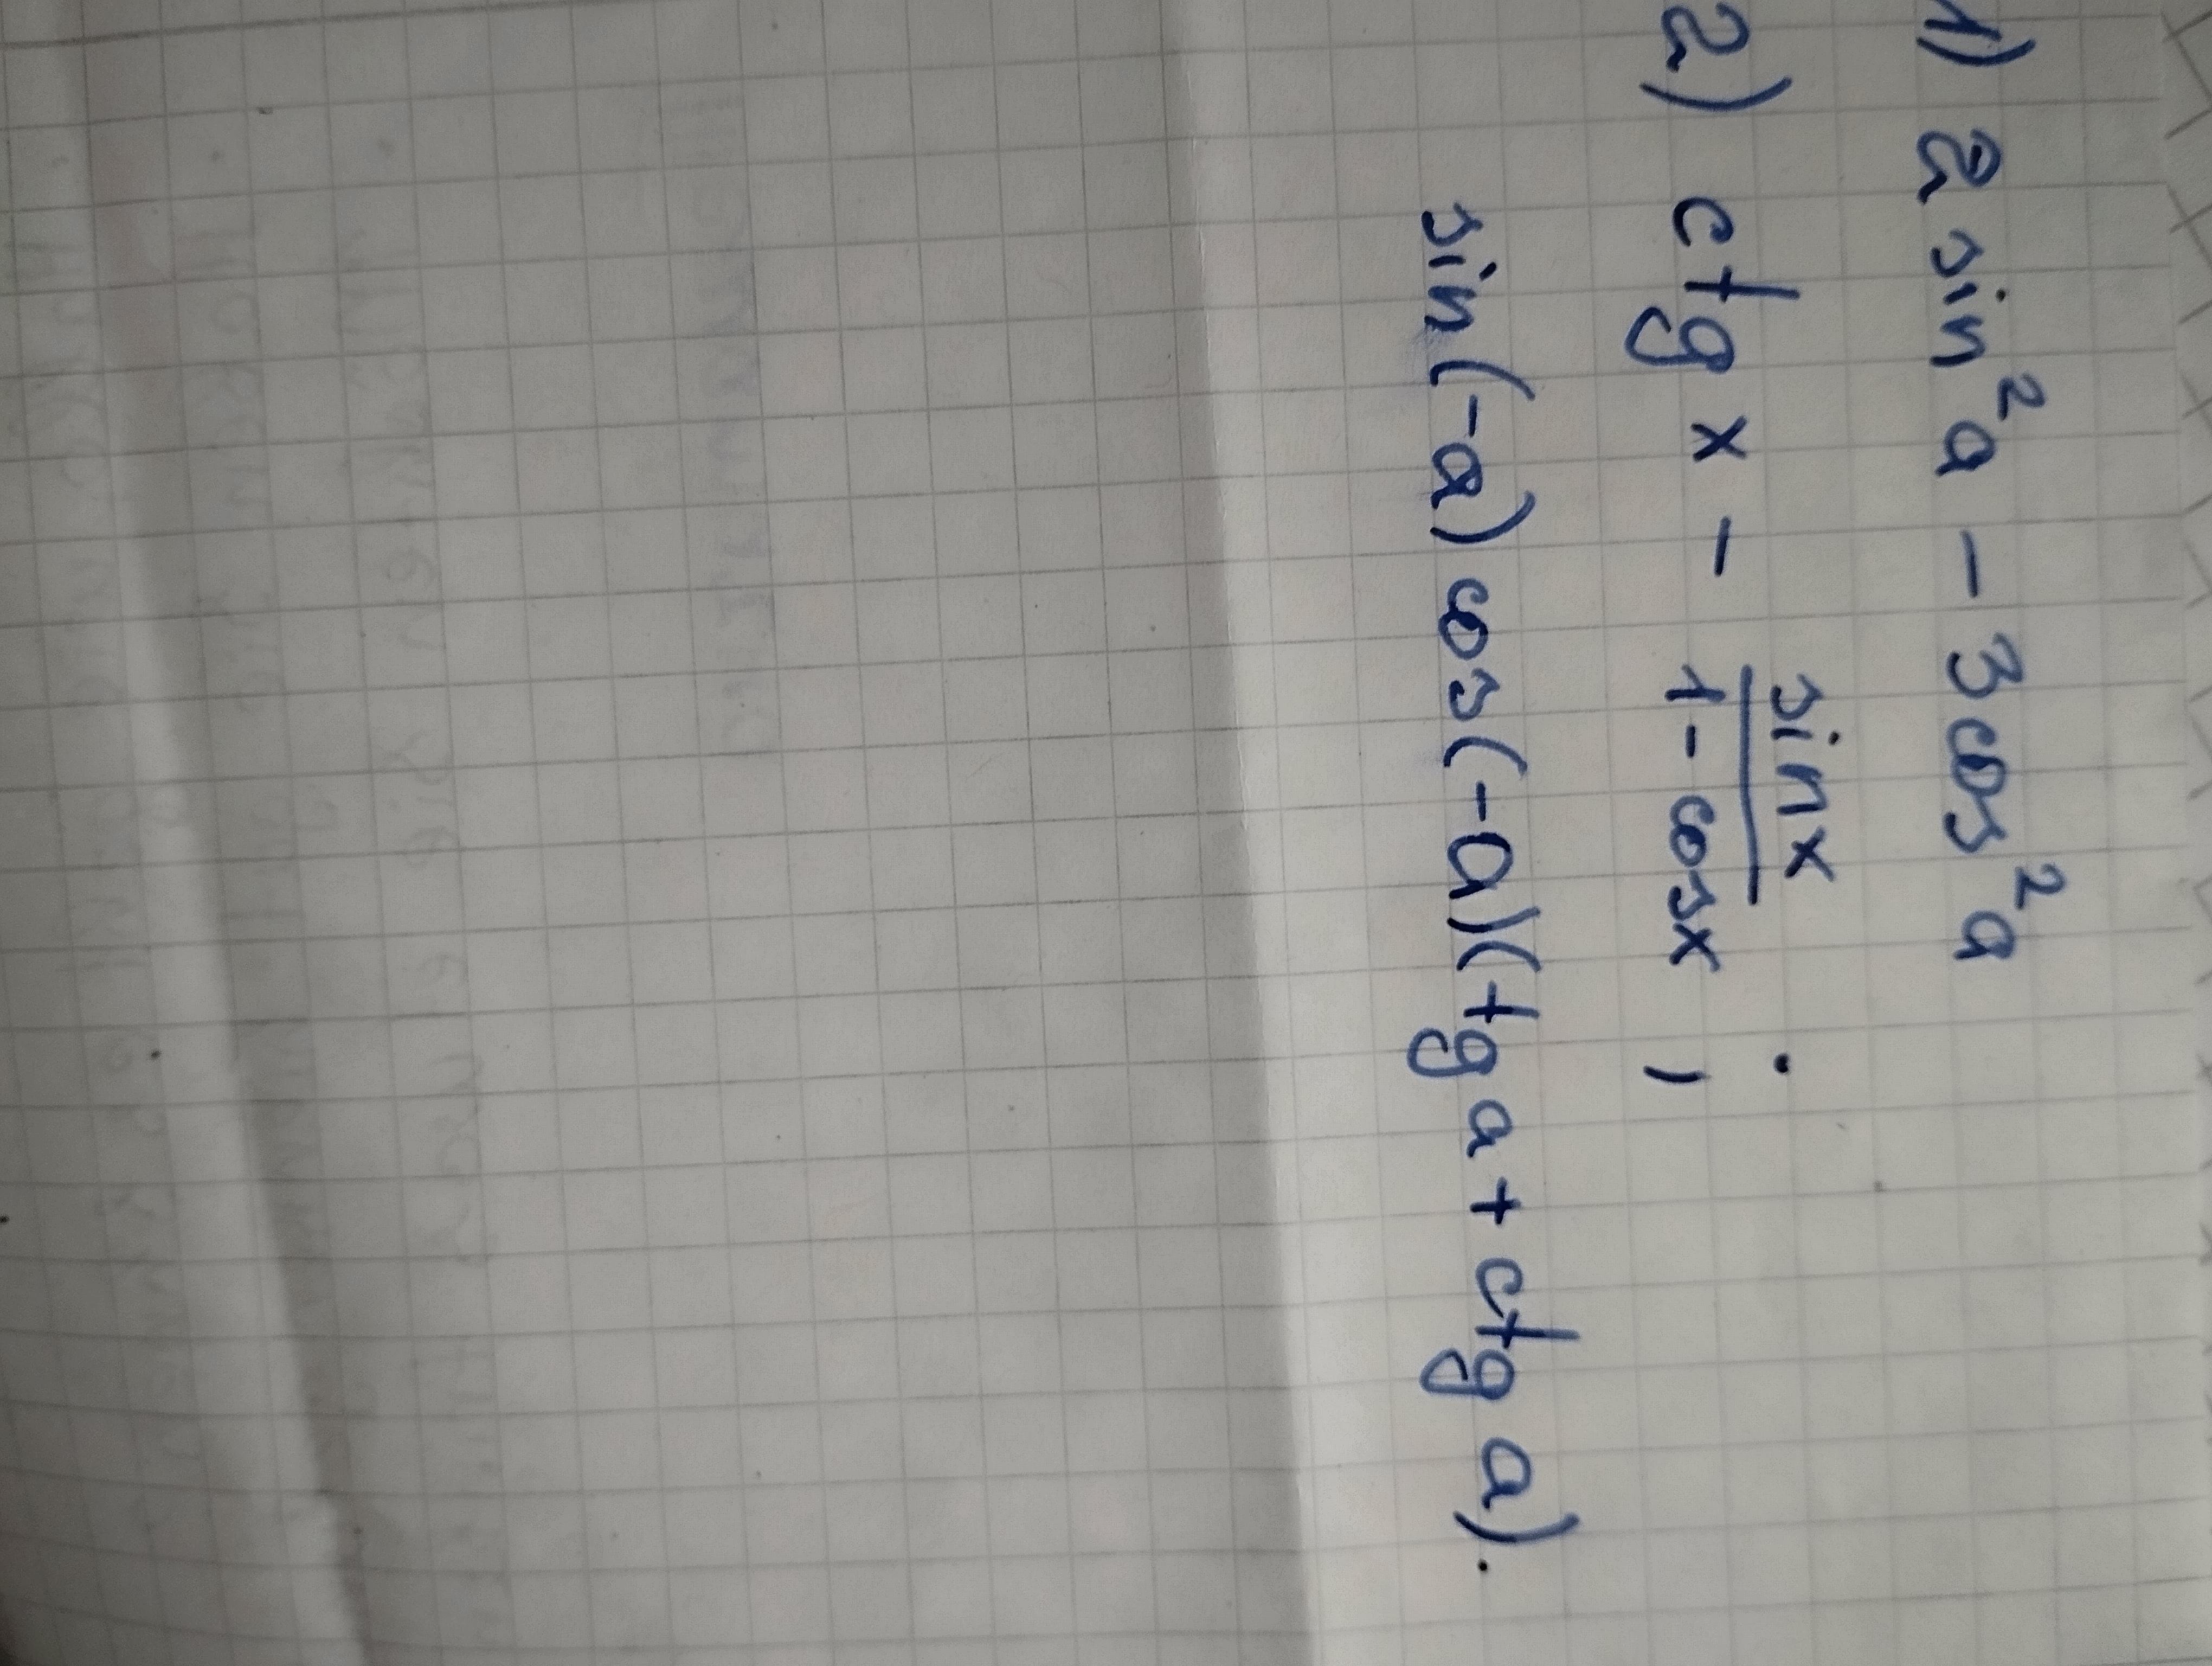 1) 2 sin²a - 3cos²a
2) ctg x - sin x / 1 - cosx ;
sin(-a)cos(-a)(tg a + ctg a).